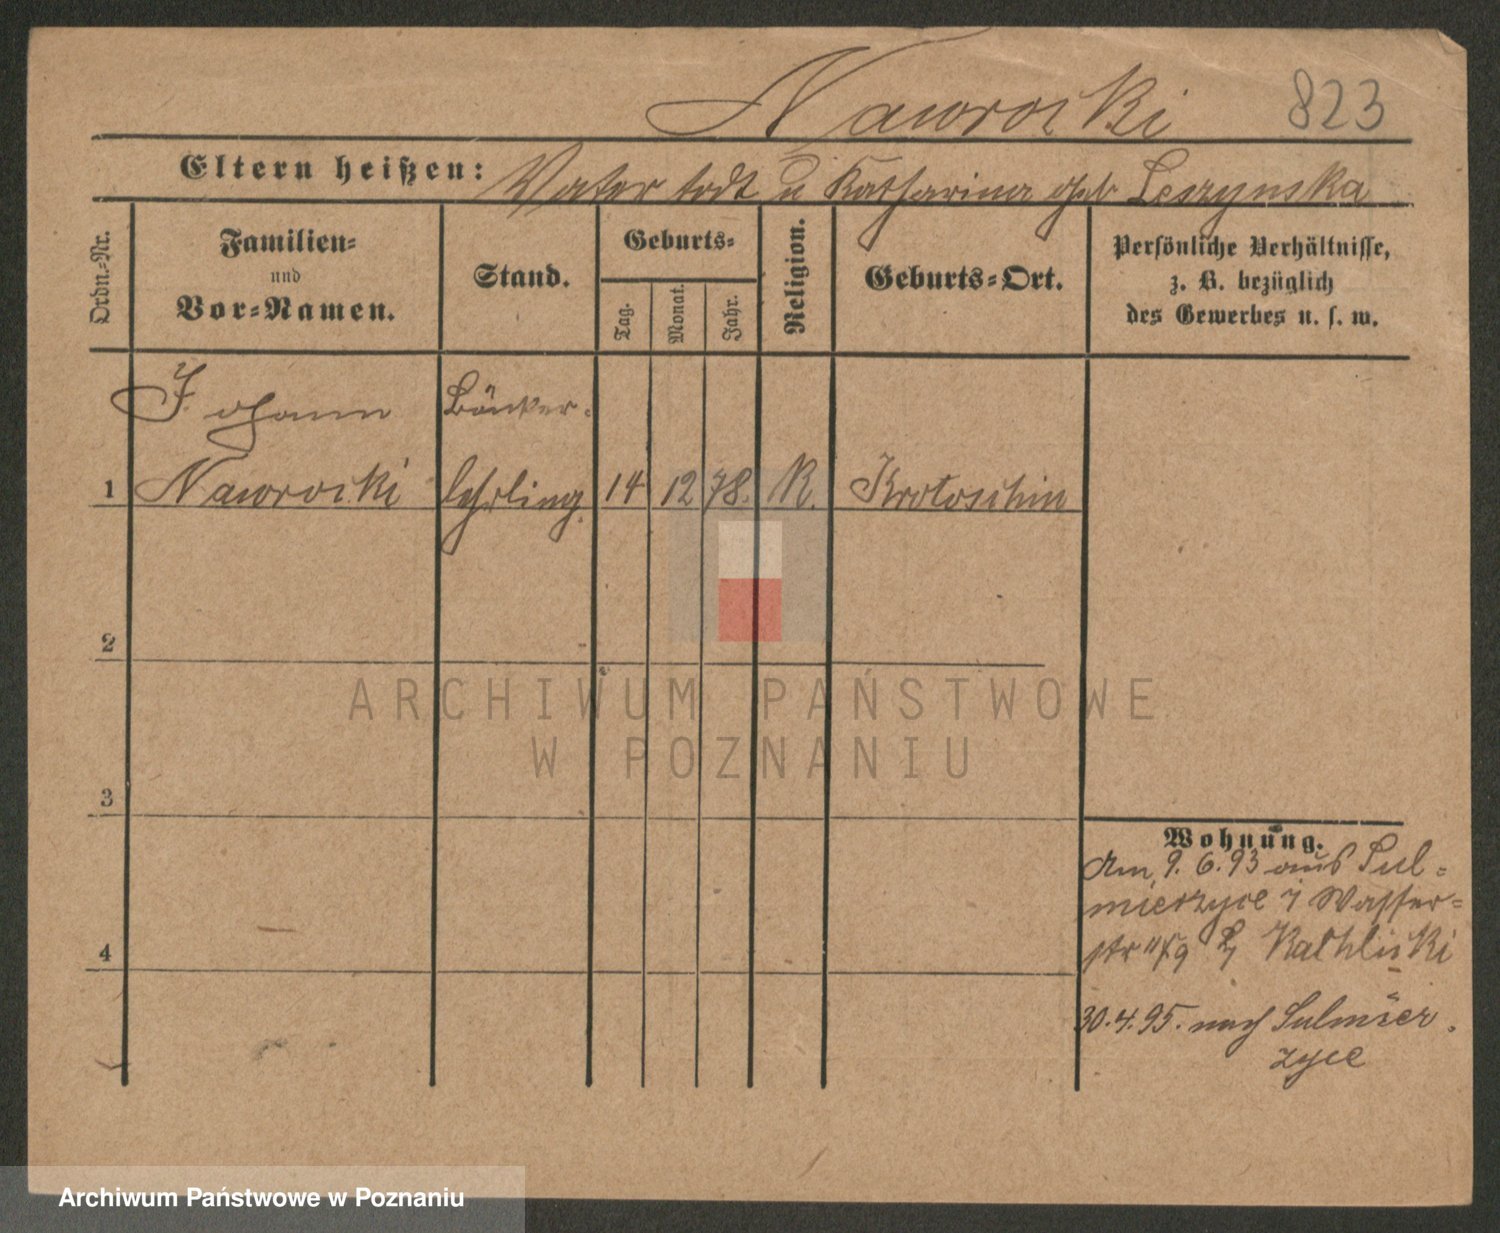 Nawrocki 823
Eltern heißen: Vater todt u Katharina geb Leszynska
Ordn.-Nr.
Familien-
und
Vor-Namen.
Stand.
Geburts-
Tag.
Monat.
Jahr.
Religion.
Geburts-Ort.
Persönliche Verhältnisse,
z. B. bezüglich
des Gewerbes u. s. w.
Johann
Nawrocki
1
lehrling.
14 12 78. K. Krotoschin
2
3
4
Wohnung.
Am 9.6.93 aus Sul-
mierzyce i Wasser-
str
30.4.95. nach Sulmier-
zyce
ARCHIWUM PAŃSTWOWE
W POZNANIU
Archiwum Państwowe w Poznaniu